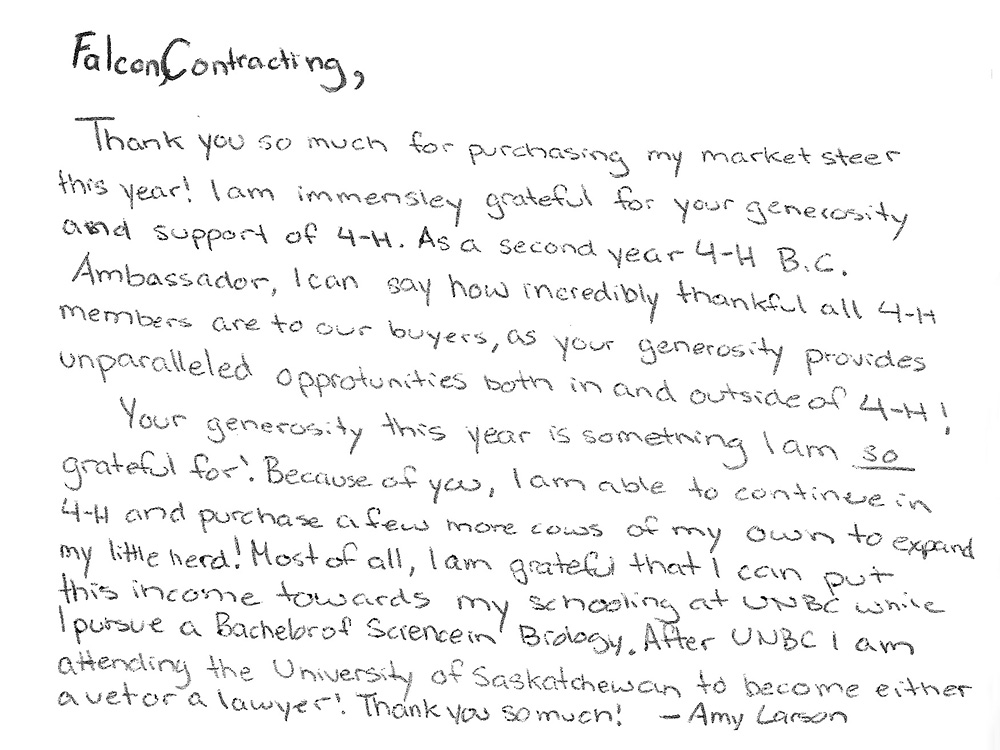 Falcon Contracting,
Thank you so much for purchasing my market steer
this year! I am immensley grateful for your generosity
and support of 4-H. As a second year 4-H B.C.
Ambassador, I can say how incredibly thankful all 4-H
members are to our buyers, as your generosity provides
unparalleled opprotunities both in and outside of 4-H!
Your generosity this year is something I am so
grateful for! Because of you, I am able to continue in
4-H and purchase a few more cows of my own to expand
my little herd! Most of all, I am grateful that I can put
this income towards my schooling at UNBC while
I pursue a Bachelor of Science in Biology. After UNBC I am
attending the University of Saskatchewan to become either
a vet or a lawyer! Thank you so much! - Amy Larson